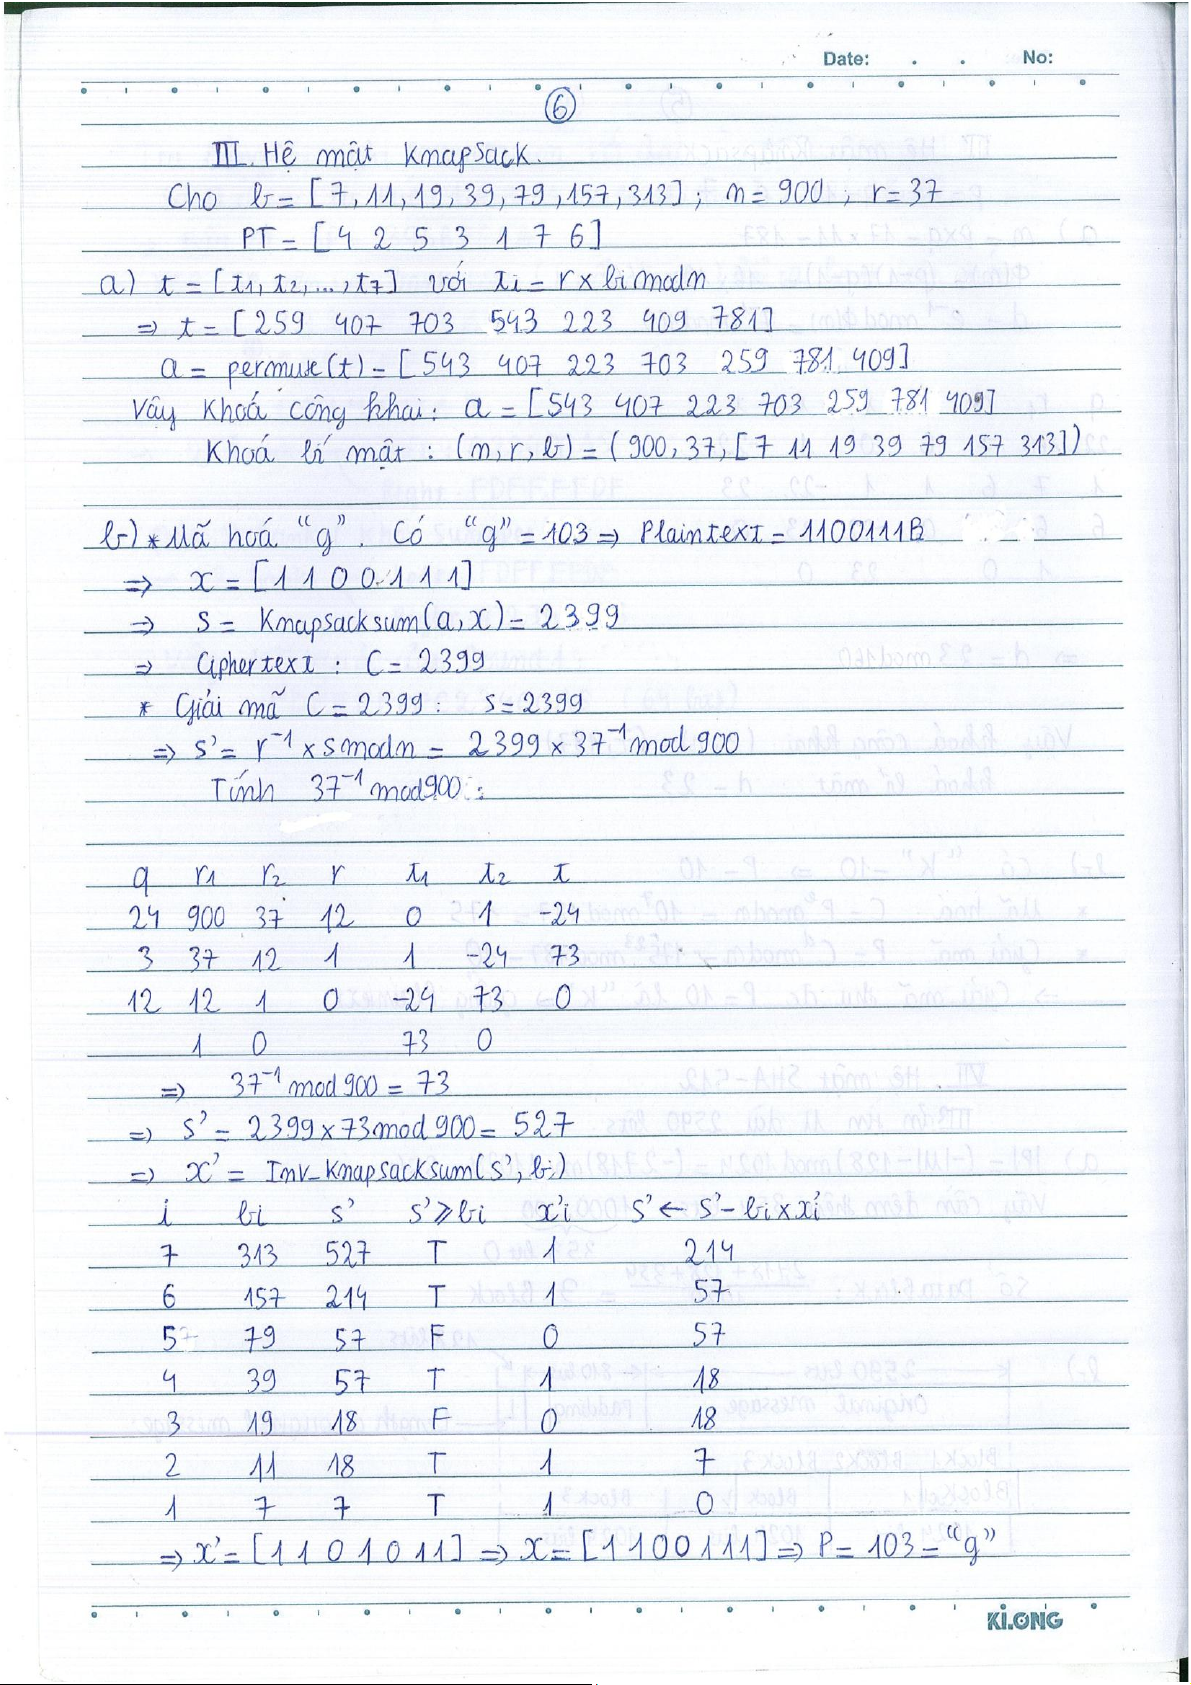 Date: . . No:
6
III. Hệ mật Knapsack.
Cho b = [7, 11, 19, 39, 79, 157, 313] ; n = 900 ; r = 37
PT = [4 2 5 3 1 7 6]
a) t = [t1, t2, ..., t7] với ti = r x bi mod n
=> t = [259 407 703 543 223 409 781]
a = permute(t) = [543 407 223 703 259 781 409]
Vậy Khoá công khai: a = [543 407 223 703 259 781 409]
Khoá bí mật : (n, r, b) = (900, 37, [7 11 19 39 79 157 313])
b) * Mã hoá "g". Có "g" = 103 => Plaintext = 1100111B
=> x = [1 1 0 0 1 1 1]
=> s = Knapsacksum(a, x) = 2399
=> Ciphertext : C = 2399
* Giải mã C = 2399 : s = 2399
=> s' = r⁻¹ x s mod n = 2399 x 37⁻¹ mod 900
Tính 37⁻¹ mod 900 :
q r1 r2 r t1 t2 t
24 900 37 12 0 1 -24
3 37 12 1 1 -24 73
12 12 1 0 -24 73 0
1 0 73 0
=> 37⁻¹ mod 900 = 73
=> s' = 2399 x 73 mod 900 = 527
=> x' = Inv_Knapsacksum(s', bi)
i bi s' s' ⩾ bi x'i s' ← s' - bi x xi'
7 313 527 T 1 214
6 157 214 T 1 57
5 79 57 F 0 57
4 39 57 T 1 18
3 19 18 F 0 18
2 11 18 T 1 7
1 7 7 T 1 0
=> x' = [1 1 0 1 0 1 1] => x = [1 1 0 0 1 1 1] => P = 103 = "g"
Ki.ONG